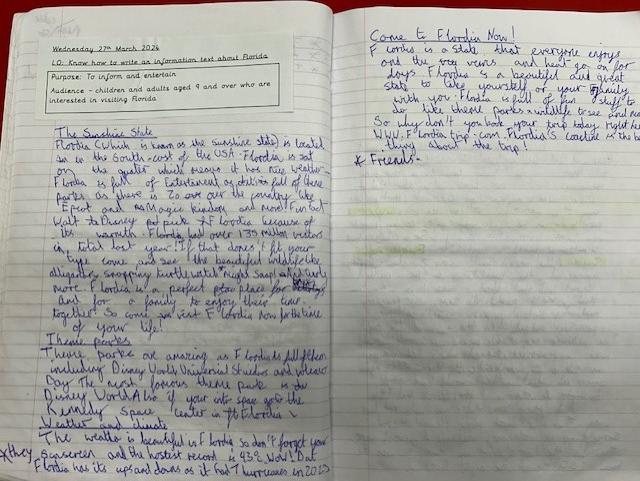 Wednesday 27th March 2024
LO: Know how to write an information text about Florida
Purpose: To inform and entertain
Audience - children and adults aged 9 and over who are
interested in visiting Florida
The Sunshine State
Florida (Which is known as the sunshine state) is located
in the South-cost of the USA. Florida is sat
on the which means it has nice weather.
Florida is full of Entertament as it is full of theme
parks as there is 20 over our the country like
Epcot and Magic Kingdom and more! Fun Fact
Walt Disney picked Florida because of
its warmth. Florida had over 135 million visitors
in total last year! If that dosen't fit your
type come and see the beautiful wildlife like
alligators, snapping turtle, until might snap! And lots
more. Florida is a perfect place for
and for a family to enjoy their time
together! So come visit Florida now for the time
of your life!
Theme parks
Theme parks are amazing as Florida is full of them
including Disney World, Universal Studios and
Day. The most famous theme park is
Disney World. Also if your into space go to the
Kennedy Space center in Florida
Weather and climate
The weather is beautiful in Florida so don't forget your
*they sunscreen and the hostest record is 43°C Wow! But
Florida has its ups and downs as it had 7 hurricanes in 2023
Come to Flordia Now!
Florida is a state that everyone enjoys
and the views and heat go on for
days. Florida is a beautiful and great
state to take yourself or your family
with you. Florida is full of fun stuff to
do like theme parks, wildlife to see and more
So why don't you book your trip today right now
WWW.Florida trip.com. Florida's coastline is the best
thing about the trip!
* Friends.